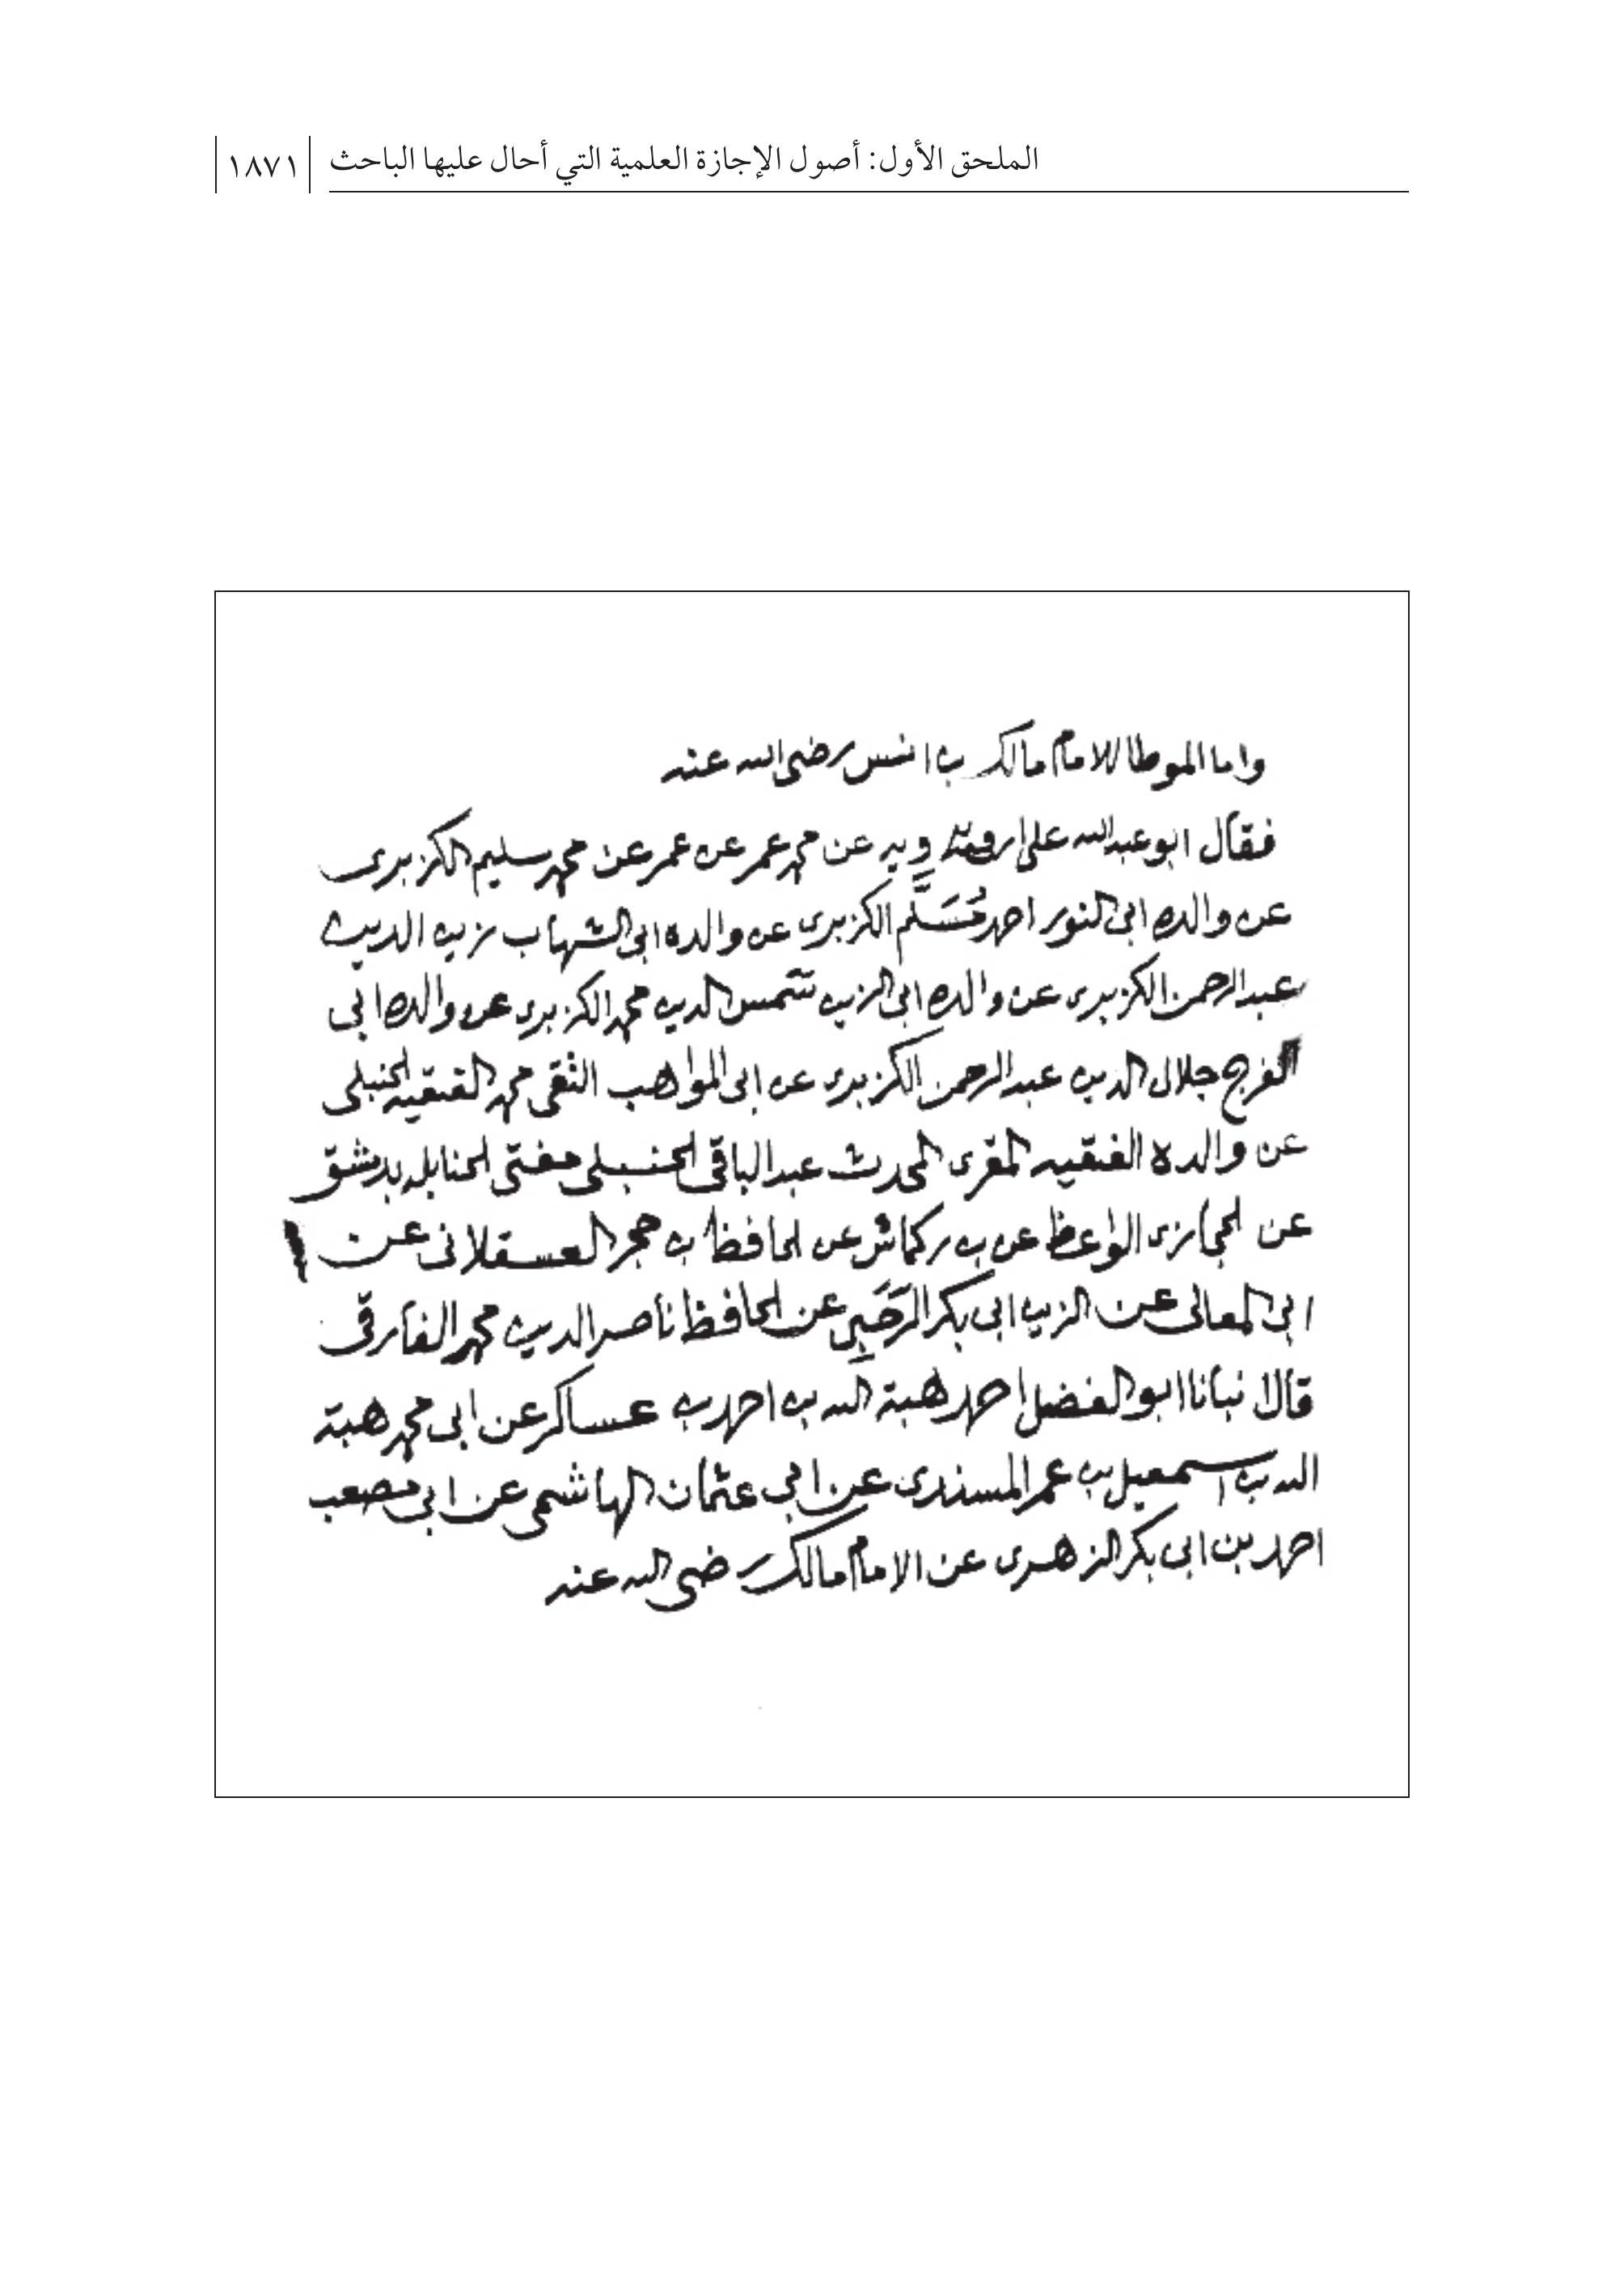 الملحق الأول: أصول الإجازة العلمية التي أحال عليها الباحث ١٨٧١
واما الموطا للامام مالك بن انس رضى الله عنه
فقال ابو عبد الله على عن محمد عمر عن عمر عن محمد سليم الكزبرى
عن والده ابى النور احمد مُسَلَّم الكزبرى عن والده ابى الشهاب زين الدين
عبد الرحمن الكزبرى عن والده ابى الزين شمس الدين محمد الكزبرى عن والده ابى
الفرج جلال الدين عبد الرحمن الكزبرى عن ابى المواهب التقى محمد الفقيه الحنبلى
عن والده الفقيه المقرى المحدث عبد الباقى الحنبلى مفتى الحنابله بدمشق
عن الحجازى الواعظ عن بن اركماش عن الحافظ بن حجر العسقلانى عن
ابى المعالى عن الزين ابى بكر الرَّحَبِي عن الحافظ ناصر الدين محمد الفارقى
قال انبانا ابو الفضل احمد هبة الله بن احمد بن عساكر عن ابى محمد هبة
الله بن اسمعيل بن عمر المسندى عن ابى عثمان الهاشمى عن ابى مصعب
احمد بن ابى بكر الزهرى عن الامام مالك رضى الله عنه